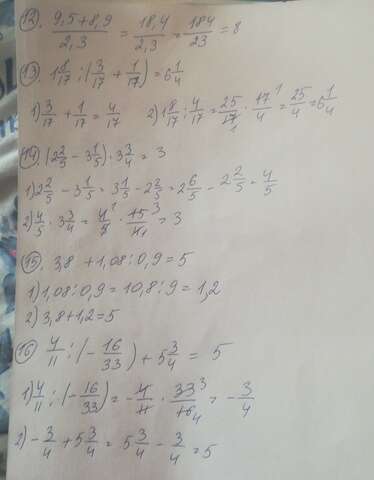 12. (9,5+8,9)/(2,3) = (18,4)/(2,3) = 184/23 = 8
13. 1 8/17 : (3/17 + 1/17) = 6 1/4
1) 3/17 + 1/17 = 4/17 2) 1 8/17 : 4/17 = 25/17 · 17/4 = 25/4 = 6 1/4
14. (2 2/5 - 3 1/5) · 3 3/4 = 3
1) 2 2/5 - 3 1/5 = 3 1/5 - 2 2/5 = 2 6/5 - 2 2/5 = 4/5
2) 4/5 · 3 3/4 = 4/5 · 15/4 = 3
15. 3,8 + 1,08 : 0,9 = 5
1) 1,08 : 0,9 = 10,8 : 9 = 1,2
2) 3,8 + 1,2 = 5
16 4/11 : (- 16/33) + 5 3/4 = 5
1) 4/11 : (- 16/33) = - 4/11 · 33/16 = - 3/4
2) - 3/4 + 5 3/4 = 5 3/4 - 3/4 = 5